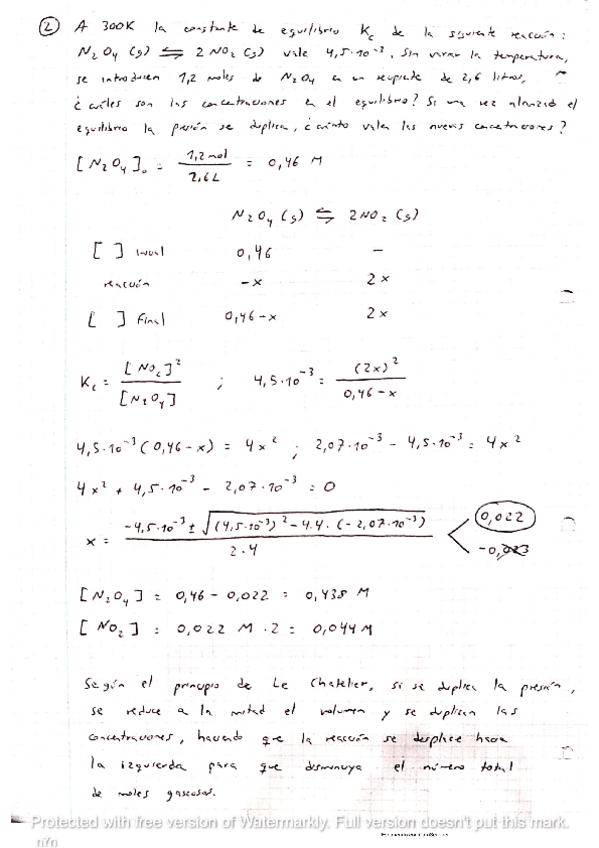 2 A 300K la constante de equilibrio Kc de la siguiente reacción:
N2O4 (g) ⇌ 2 NO2 (g) vale 4,5·10⁻³. Sin variar la temperatura,
se introducen 1,2 moles de N2O4 en un recipiente de 2,6 litros,
¿cuáles son las concentraciones en el equilibrio? Si una vez alcanzado el
equilibrio la presión se duplica, ¿cuánto valen las nuevas concentraciones?
[N2O4]₀ = 1,2 mol / 2,6 L = 0,46 M
N2O4 (g) ⇌ 2NO2 (g)
[ ] inicial 0,46 –
reacción -x 2x
[ ] final 0,46-x 2x
Kc = [NO2]² / [N2O4] ; 4,5·10⁻³ = (2x)² / 0,46-x
4,5·10⁻³ (0,46-x) = 4x² ; 2,07·10⁻³ - 4,5·10⁻³ = 4x²
4x² + 4,5·10⁻³ - 2,07·10⁻³ = 0
x = -4,5·10⁻³ ± √(4,5·10⁻³)² - 4·4·(-2,07·10⁻³) / 2·4 < 0,022
-0,023
[N2O4] = 0,46 - 0,022 = 0,438 M
[NO2] = 0,022 M · 2 = 0,044 M
Según el principio de Le Chatelier, si se duplica la presión,
se reduce a la mitad el volumen y se duplican las
concentraciones, haciendo que la reacción se desplace hacia
la izquierda para que disminuya el número total
de moles gaseosos.
Protected with free version of Watermarkly. Full version doesn't put this mark.